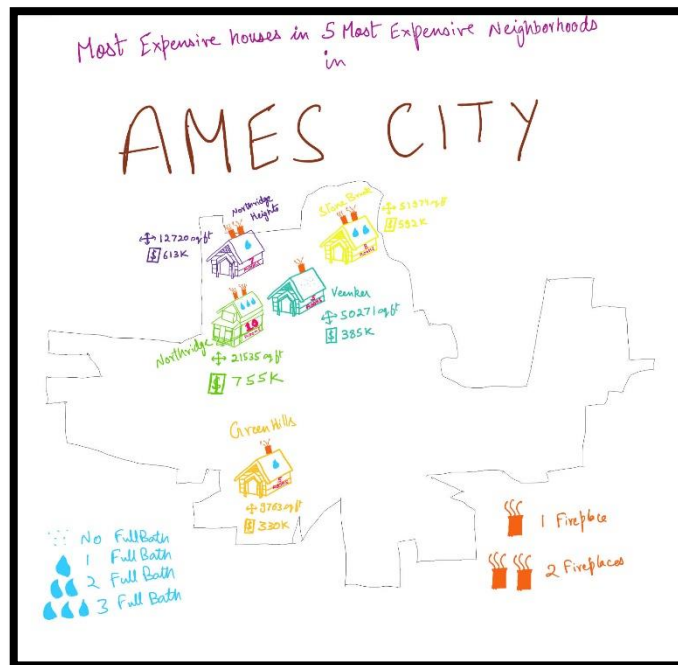 Most Expensive houses in 5 Most Expensive Neighborhoods
in
AMES CITY
Northridge
Heights
12720 sq ft
$ 613K
Stone Brook
sq ft
$ 592K
Veenker
50271 sq ft
$ 385K
10
Northridge
21535 sq ft
$ 755K
Green Hills
8763 sq ft
$ 330K
No Full Bath
1 Full Bath
2 Full Bath
3 Full Bath
1 Fireplace
2 Fireplaces